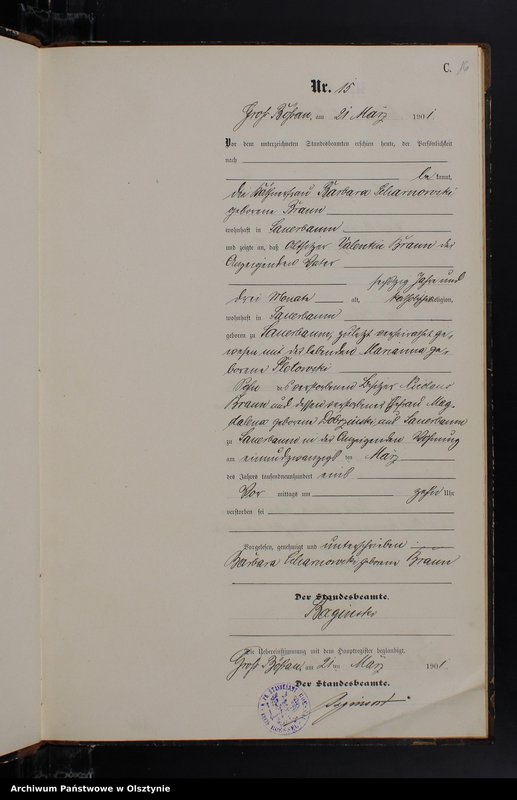 C. 16
Nr. 15
Groß Bößau, am 21 März 1901
Vor dem unterzeichneten Standesbeamten erschien heute, der Persönlichkeit
nach
be kannt,
die Käthnerfrau Barbara Scharnowski
geborene Braun
wohnhaft in Sauerbaum
und zeigte an, daß Altsitzer Valentin Braun der
Anzeigenden Vater
sechszig Jahre und
drei Monate alt, katholischer Religion,
wohnhaft in Sauerbaum
geboren zu Sauerbaum, zuletzt verheirathet ge-
wesen mit der lebenden Marianna ge-
borene
Sohn des verstorbenen Besitzer
Braun und dessen verstorbenen Ehefrau Mag-
dalena geborene Dobrzinski aus Sauerbaum
zu Sauerbaum in der Anzeigenden Wohnung
am einundzwanzigsten März
des Jahres tausendneunhundert eins
Vor mittags um zehn Uhr
verstorben sei
Vorgelesen, genehmigt und unterschrieben
Barbara Scharnowski geborene Braun
Der Standesbeamte.
Baginski
Die Uebereinstimmung mit dem Hauptregister beglaubigt.
Groß Bößau, am 21 ten März 1901
Der Standesbeamte.
Archiwum Państwowe w Olsztynie